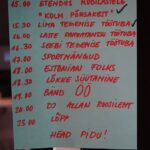 15.00 ETENDUS KOOLILASTELE
"KOLM PÕRSAKEST"
15.30 LIMA TEGEMISE TÖÖTUBA
16.00 LASTE RAAMATUTSU TÖÖTUBA
16.30 SEEBI TEGEMISE TÖÖTUBA
17.30 SPORTMÄNGUD
18.00 ESTONIAN FOLKS
18.30 LÕKKE SÜÜTAMINE
19.00 BÄND ÖÖ
20.00 DJ ALLAN ROOSILEHT
23.00 LÕPP
HEAD PIDU!